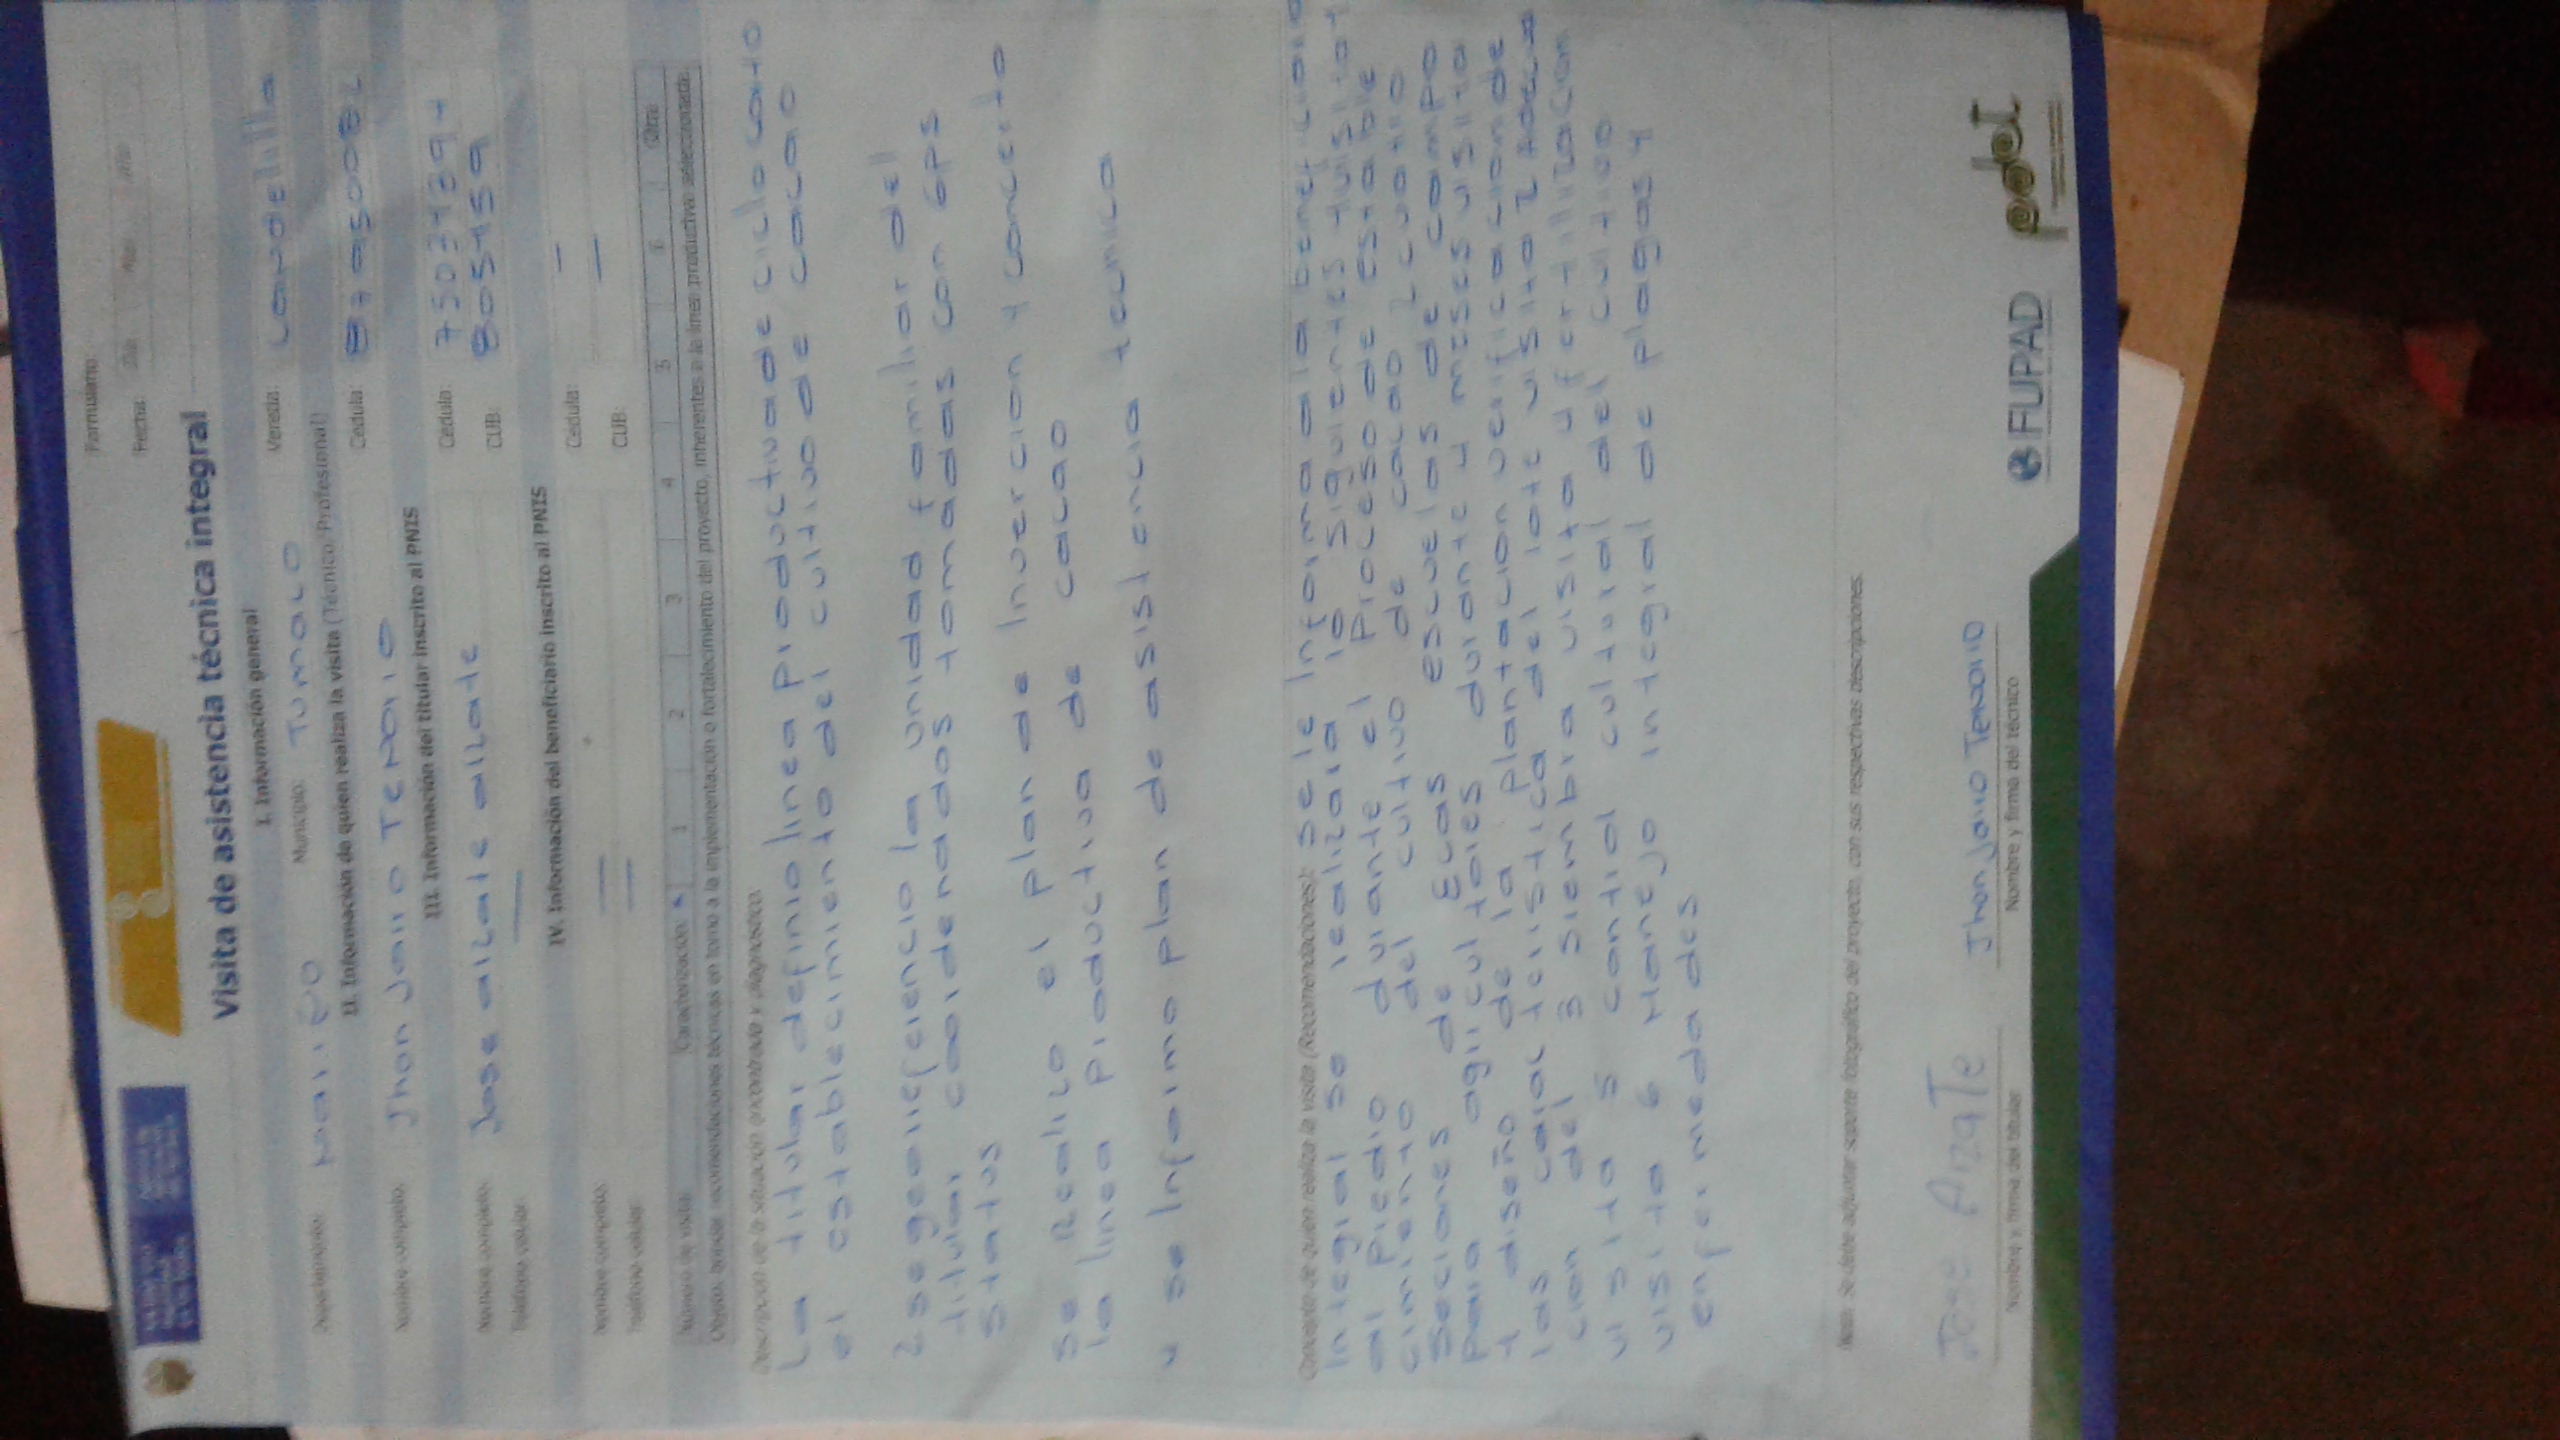 Formulario:
Fecha:
Visita de asistencia técnica integral
I. Información general
Departamento: Nariño Municipio: Tumaco Vereda: candelilla
II. Información de quien realiza la visita (Técnico-Profesional)
Nombre completo: Jhon Jairo Tenorio Cedula:
III. Información del titular inscrito al PNIS
Nombre completo: Jose alzate alzate Cedula:
Teléfono celular: — CUB: 805459
IV. Información del beneficiario inscrito al PNIS
Nombre completo: — Cedula: —
Teléfono celular: — CUB: —
Número de visita: Caracterización x 1 2 3 4 5 6 Otra
Objeto: brindar recomendaciones técnicas en torno a la implementación o fortalecimiento del proyecto, inherentes a la línea productiva seleccionada.
Descripción de la situación encontrada y diagnóstico.
La titular definio linea productiva de ciclo corto
el establecimiento del cultivo de cacao
2 se georieferencio la unidad familiar del
titular coordenadas tomadas con GPS
Status
Se Realizo el plan de Invercion y concerto
la linea productiva de cacao
4 se Informo plan de asistencia tecnica
Concepto de quien realiza la visita (Recomendaciones): Se le Informa a la
Integral se realizara la siguientes
al Predio durante el Proceso de estable
cimiento del cultivo de cacao
Seciones de Ecas escuelas de campo
para agricultores durante 4 meses visita
y diseño de la plantacion verificacion de
las caracteristica del lote visita 2
cion del 3 siembra visita 4 fertilizacion
visita 5 control cultural del cultivo
visita 6 Manejo integral de plagas y
enfermedades
Nota: Se debe adjuntar soporte fotográfico del proyecto, con sus respectivas descripciones.
Jose AlzaTe Jhon Jairo Tenorio
Nombre y firma del titular Nombre y firma del técnico
FUPAD